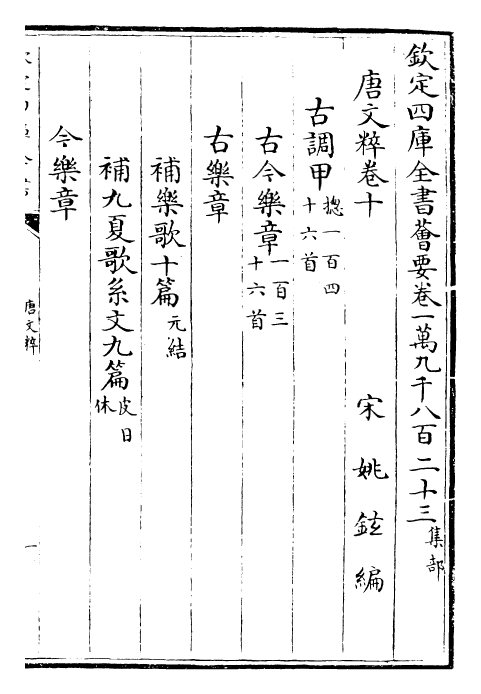 欽定四庫全書薈要卷一萬九千八百二十三集部
唐文粹卷十
宋姚鉉編
古調甲揔一百四十六首
古今樂章一百三十六首
古樂章
補樂歌十篇元結
補九夏歌系文九篇皮日休
今樂章
唐文粹
一